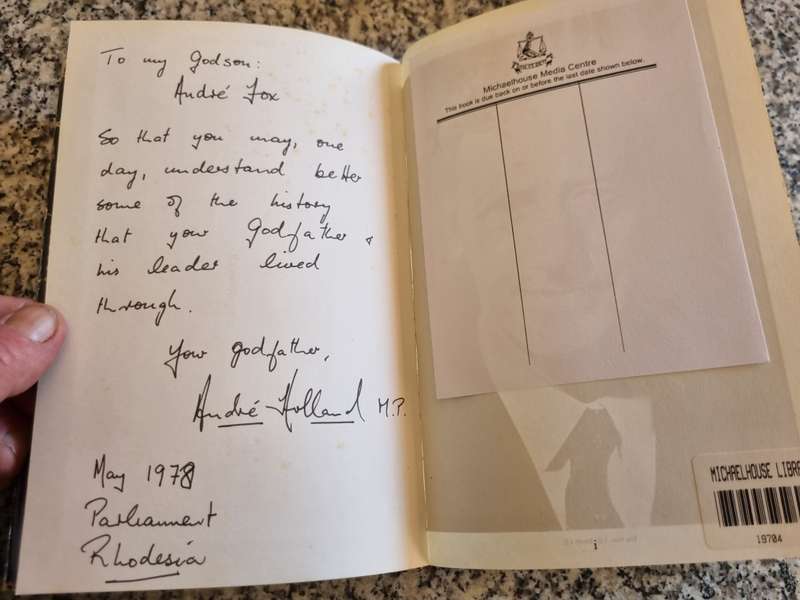 To my godson:
André Fox
So that you may, one
day, understand better
some of the history
that your Godfather &
his leader lived
through.
Your godfather,
André Holland M.P.
May 1978
Parliament
Rhodesia
Michaelhouse Media Centre
This book is due back on or before the last date shown below.
i
MICHAELHOUSE LIBRA
19704